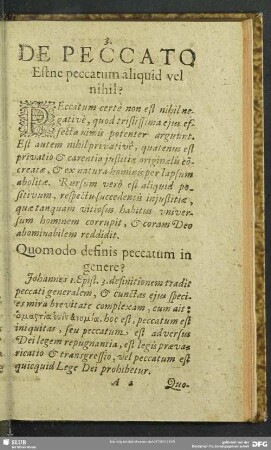 3.
DE PECCATO
Estne peccatum aliquid vel
nihil?
PEccatum certè non est nihil ne-
gativè, quod tristissima ejus ef-
fecta nimis potenter arguunt.
Est autem nihil privativè, quatenus est
privatio & carentia justitiæ originalis cō-
creatæ, & ex natura hominis per lapsum
abolitæ. Rursum verò est aliquid po-
sitivum, respectu succedentis injustitiæ,
quæ tanquam vitiosus habitus univer-
sum hominem corrupit, & coram Deo
abominabilem reddidit.
Quomodo definis peccatum in
genere?
Johannes 1. Epist. 3. definitionem tradit
peccati generalem, & cunctas ejus speci-
es mira brevitate complexam, cum ait:
hoc est, peccatum est
iniquitas, seu peccatum, est adversus
Dei legem repugnantia, est legis præva-
ricatio & transgressio, vel peccatum est
quicquid Lege Dei prohibetur.
A 2 Quo-
SLUB
DFG